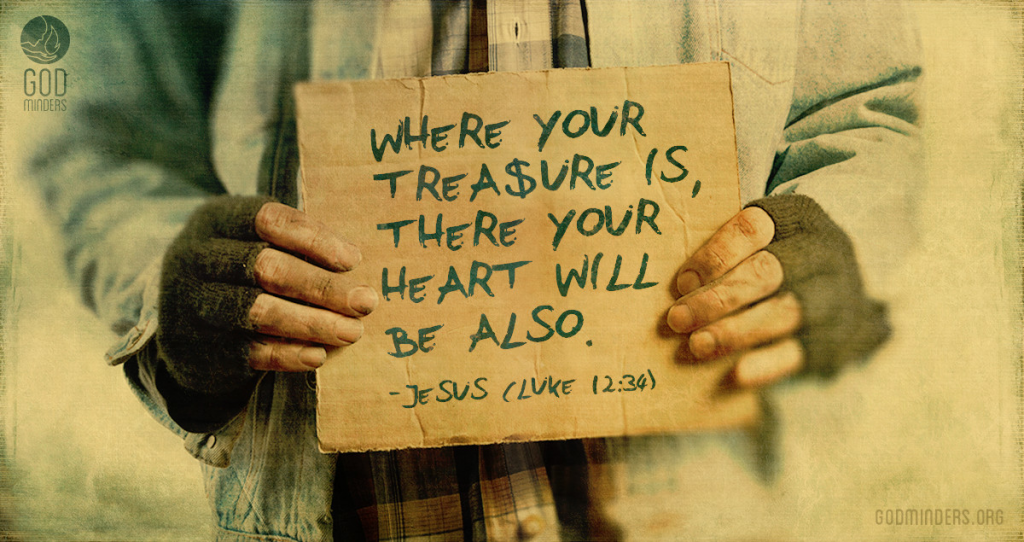 GOD
MINDERS
WHERE YOUR
TREA$URE IS,
THERE YOUR
HEART WILL
BE ALSO.
-JESUS (LUKE 12:34)
GODMINDERS.ORG